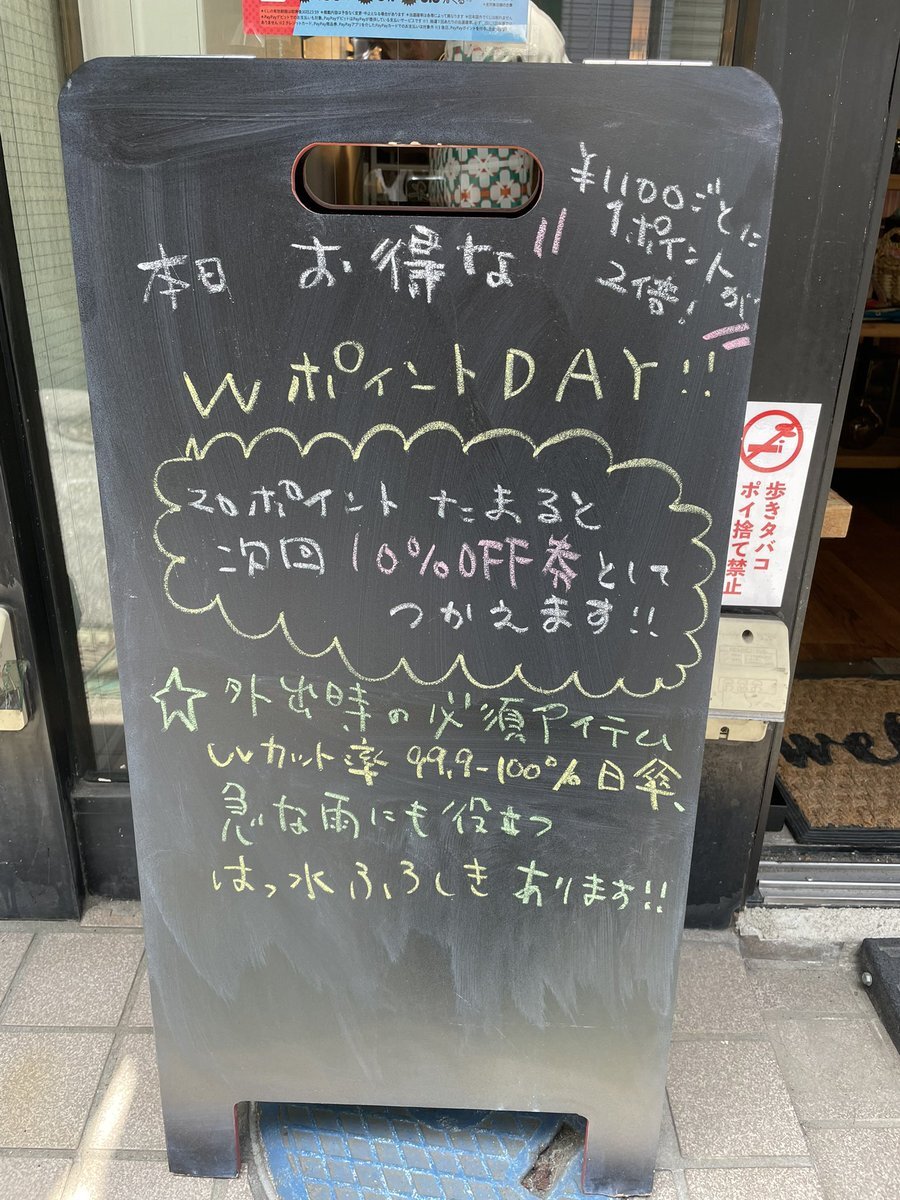 ¥1100ごとに
1ポイントが
2倍!
本日 お得な
WポイントDAY!!
20ポイント たまると
次回 10%OFF券として
つかえます!!
☆外出時の必須アイテム
Wカット率 99.9-100%日傘、
急な雨にも役立つ
はっ水ふろしき あります!!
歩きタバコ
ポイ捨て禁止
wel